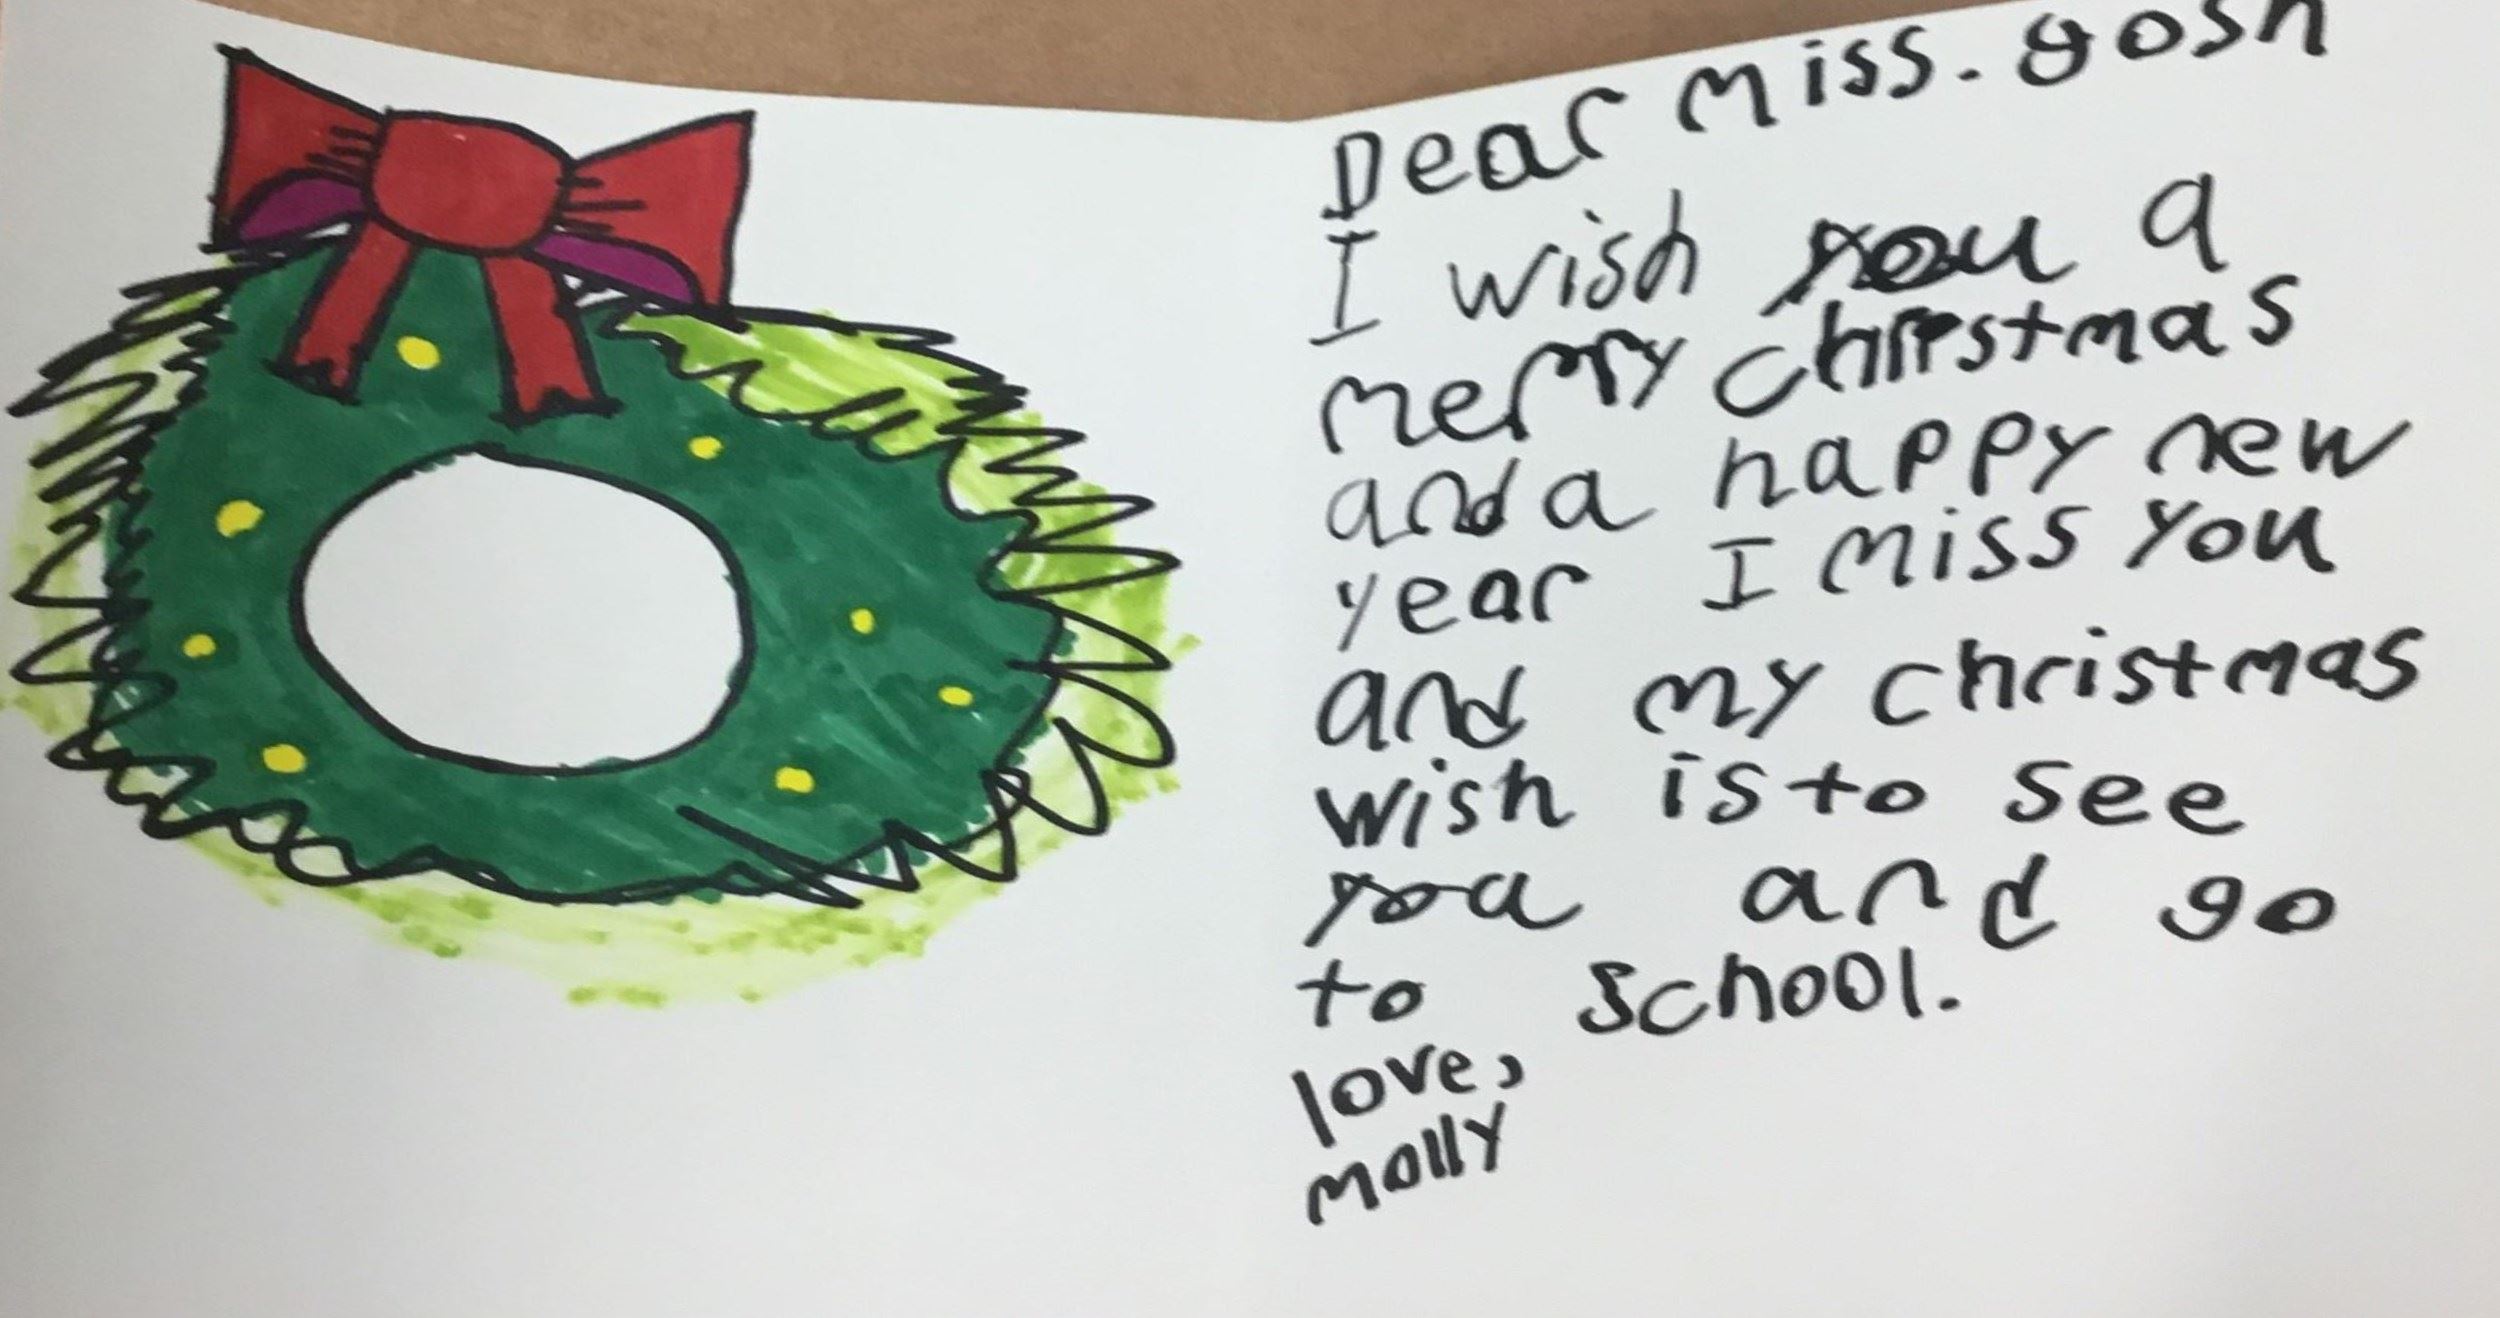 Dear Miss. gosh
I wish you a
merry christmas
and a happy new
year I miss you
and my christmas
wish is to see
you and go
to school.
love,
molly